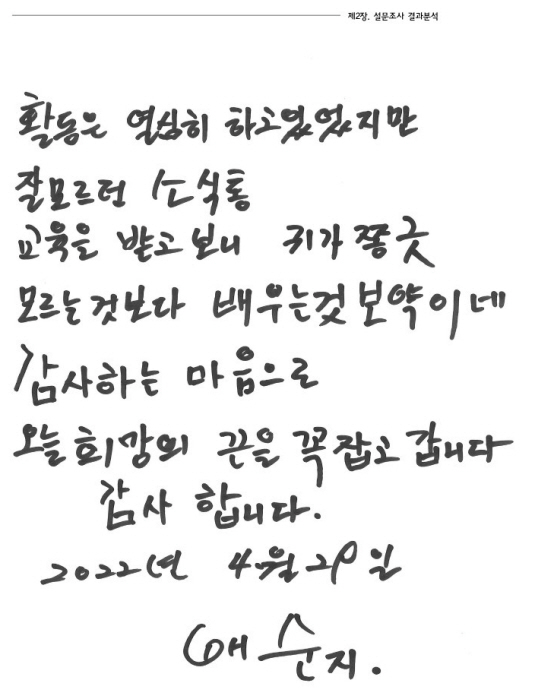 제2장. 설문조사 결과분석
활동은 열심히 하고있었지만
잘모르던 소식통
교육을 받고보니 귀가쫑긋
모르는것보다 배우는것 보약이네
감사하는 마음으로
오늘 희망의 끈을 꼭잡고 갑니다
감사 합니다.
2022년 4월 29일
순지.